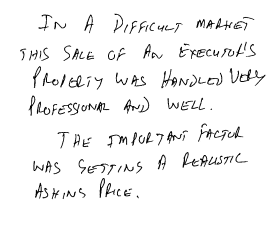 IN A DIFFICULT MARKET
THIS SALE OF AN EXECUTOR'S
PROPERTY WAS HANDLED VERY
PROFESSIONAL AND WELL.
THE IMPORTANT FACTOR
WAS SETTING A REALISTIC
ASKING PRICE.